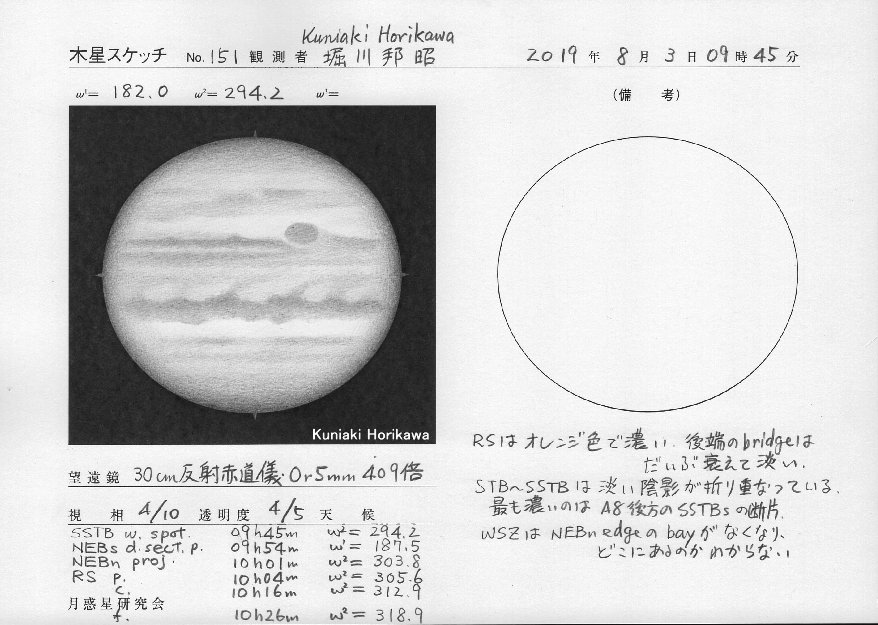 Kuniaki Horikawa
木星スケッチ No. 151 観測者 堀川邦昭 2019年 8月 3日 09時 45分
ω¹= 182.0 ω²= 294.2 ω¹=
(備 考)
Kuniaki Horikawa
RSはオレンジ色で濃い. 後端のbridgeは
だいぶ衰えて淡い.
STB〜SSTBは淡い陰影が折り重なっている.
最も濃いのは A8後方のSSTBsの断片.
WSZはNEBn edgeのbayがなくなり、
どこにあるのかわからない
望遠鏡 30cm反射赤道儀 Or5mm 409倍
視 相 4/10 透明度 4/5 天 候
SSTB w. spot. 09h45m ω²= 294.2
NEBs d.sect. p. 09h54m ω¹= 187.5
NEBn proj. 10h01m ω²= 303.8
RS p. 10h04m ω²= 305.6
c. 10h16m ω²= 312.9
月惑星研究会
f. 10h26m ω²= 318.9